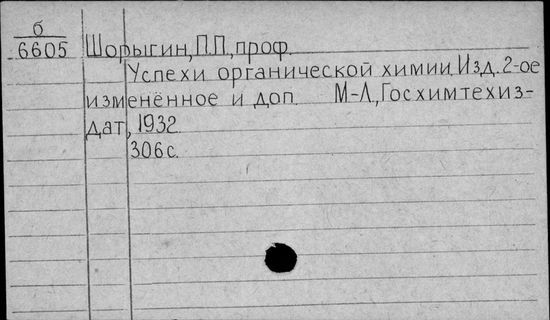 б
6605
Шорыгин, П.П., проф.
Успехи органической химии. Изд. 2-ое
изменённое и доп. М-Л, Госхимтехиз-
дат, 1932.
306 с.